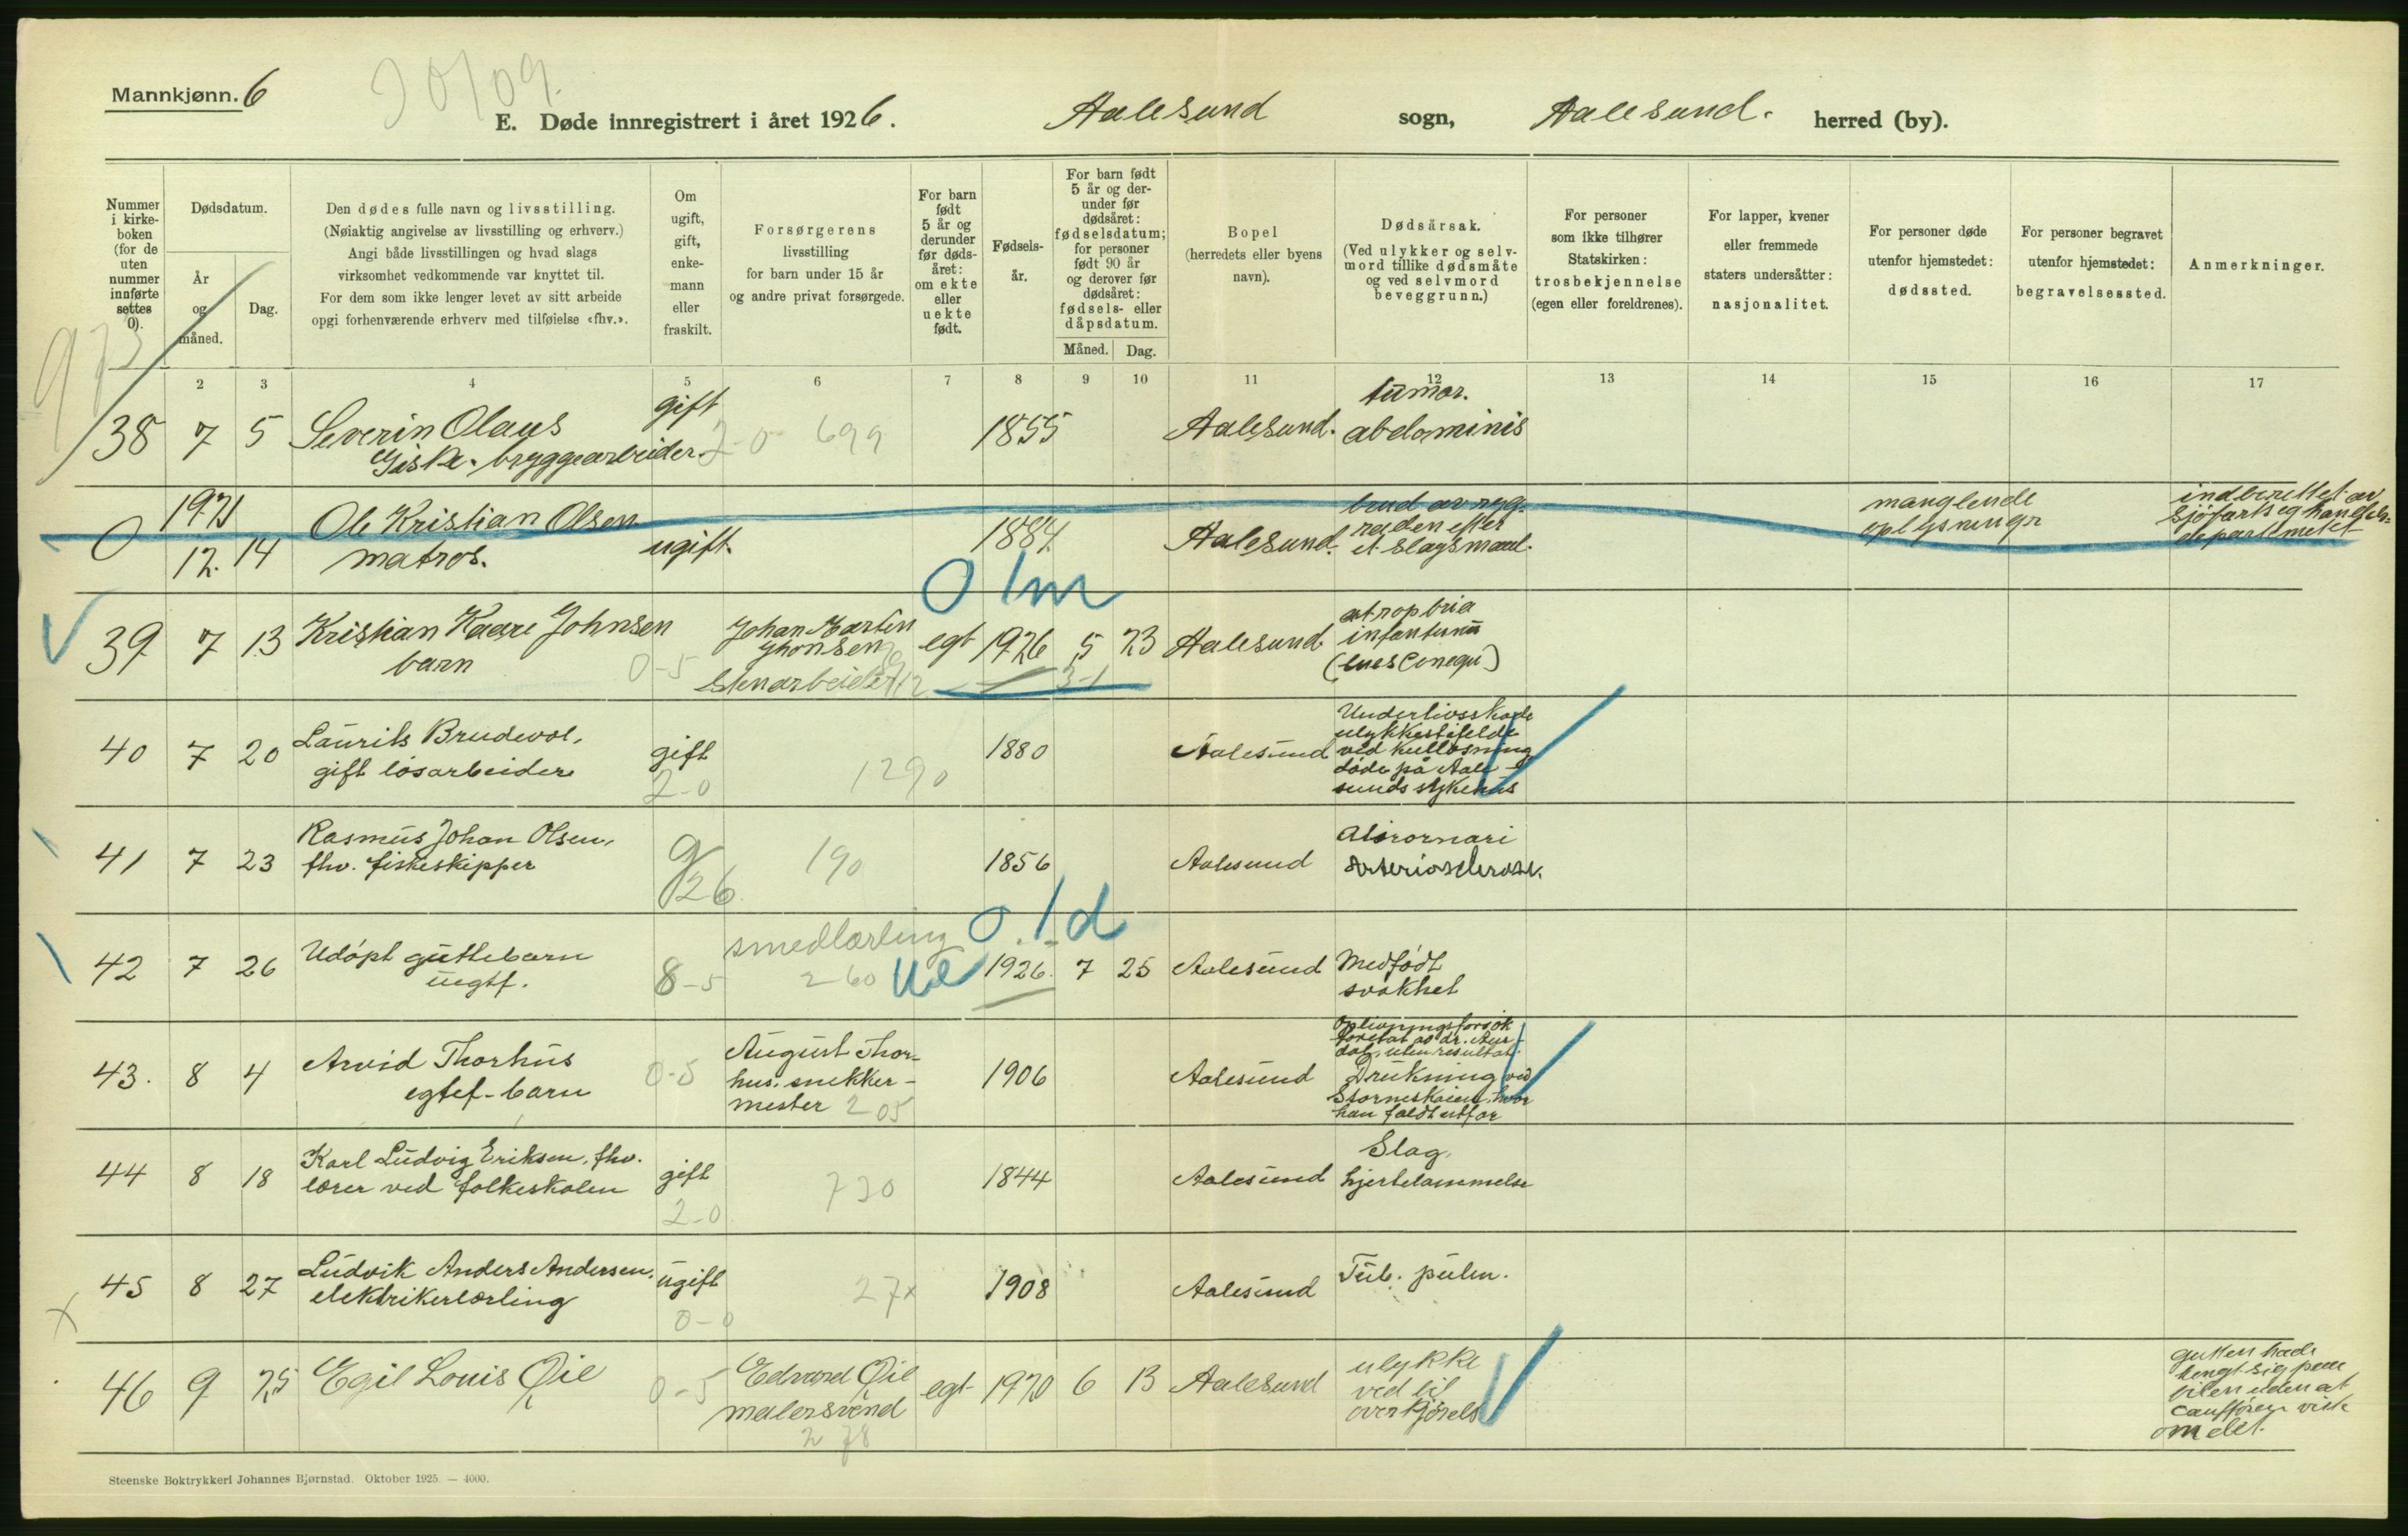 Mannkjønn. 6
E. Døde innregistrert i året 1926. Aalesund sogn, Aalesund. herred (by).
Nummer i kirkeboken (for de uten nummer innførte settes 0).
Dødsdatum.
År og måned.
Dag.
Den dødes fulle navn og livsstilling.
(Nøiaktig angivelse av livsstilling og erhverv.)
Angi både livsstillingen og hvad slags
virksomhet vedkommende var knyttet til.
For dem som ikke lenger levet av sitt arbeide
opgi forhenværende erhverv med tilføielse «fhv.».
Om ugift, gift, enkemann eller fraskilt.
Forsørgerens
livsstilling
for barn under 15 år
og andre privat forsørgede.
For barn født 5 år og derunder før dødsåret: om ekte eller uekte født.
Fødselsår.
For barn født 5 år og derunder før dødsåret: fødselsdatum; for personer født 90 år og derover før dødsåret: fødsels- eller dåpsdatum.
Måned. Dag.
Bopel
(herredets eller byens
navn).
Dødsårsak.
(Ved ulykker og selvmord tillike dødsmåte og ved selvmord beveggrunn.)
For personer
som ikke tilhører
Statskirken:
trosbekjennelse
(egen eller foreldrenes).
For lapper, kvener
eller fremmede
staters undersåtter:
nasjonalitet.
For personer døde
utenfor hjemstedet:
dødssted.
For personer begravet
utenfor hjemstedet:
begravelsessted.
Anmerkninger.
2 3 4 5 6 7 8 9 10 11 12 13 14 15 16 17
38 7 5 Severin Olaus gift 2-0 699 1855 Aalesund. tumor.
Giske. bryggearbeider. abdominis
0 1921 12. 14 Ole Kristian Olsen ugift. 1884 Aalesund. brud av ryg-
matros. raden efter
et slagsmaal.
manglende
oplysninger
indberettet av
Sjöfarts og handels-
departmetet
0 1m
39 7 13 Kristian Kaare Johnsen 0-5 Johan Martin egt 1926 5 23 Aalesund atrophia
barn Stenarbeider 3-1 infantum
40 7 20 Laurits Brudevol, gift 2-0 1290 1880 Aalesund Underlivsskade
gift løsarbeider ulykkestifelde
ved kullosning
døde på Aale-
sunds sykehus
41 7 23 Rasmus Johan Olsen, g 26 190 1856 Aalesund
fhv. fiskeskipper Arteriosclerose.
42 7 26 Udøpt guttebarn 8-5 smedlærling 0.1d
uegtf. 260 ue 1926. 7 25 Aalesund Medfødt
svakhet
43. 8 4 Arvid Thorhus 0-5 August Thor- 1906 Aalesund Oplivningsforsøk
egtef-barn hus. snekker- foretat av dr. Aur-
mester 205 dal, uten resultat.
Drukning ved
Storneskaien, hvor
han faldt utfor
44 8 18 Karl Ludvig Eriksen, fhv. gift 2-0 730 1844 Aalesund Slag,
lærer ved folkeskolen hjertelammelse
45 8 27 Ludvik Anders Andersen, ugift 0-0 27x 1908 Aalesund Tub. pulm.
elektrikerlærling
46 9 25 Egil Louis Øie 0-5 Edvard Øie egt- 1920 6 13 Aalesund ulykke
malersvend ved bil
278 overkjørels
gutten hade
hengt sig paa
bilen uden at
caufføren visste
om det.
Steenske Boktrykkeri Johannes Bjørnstad. Oktober 1925. — 4000.